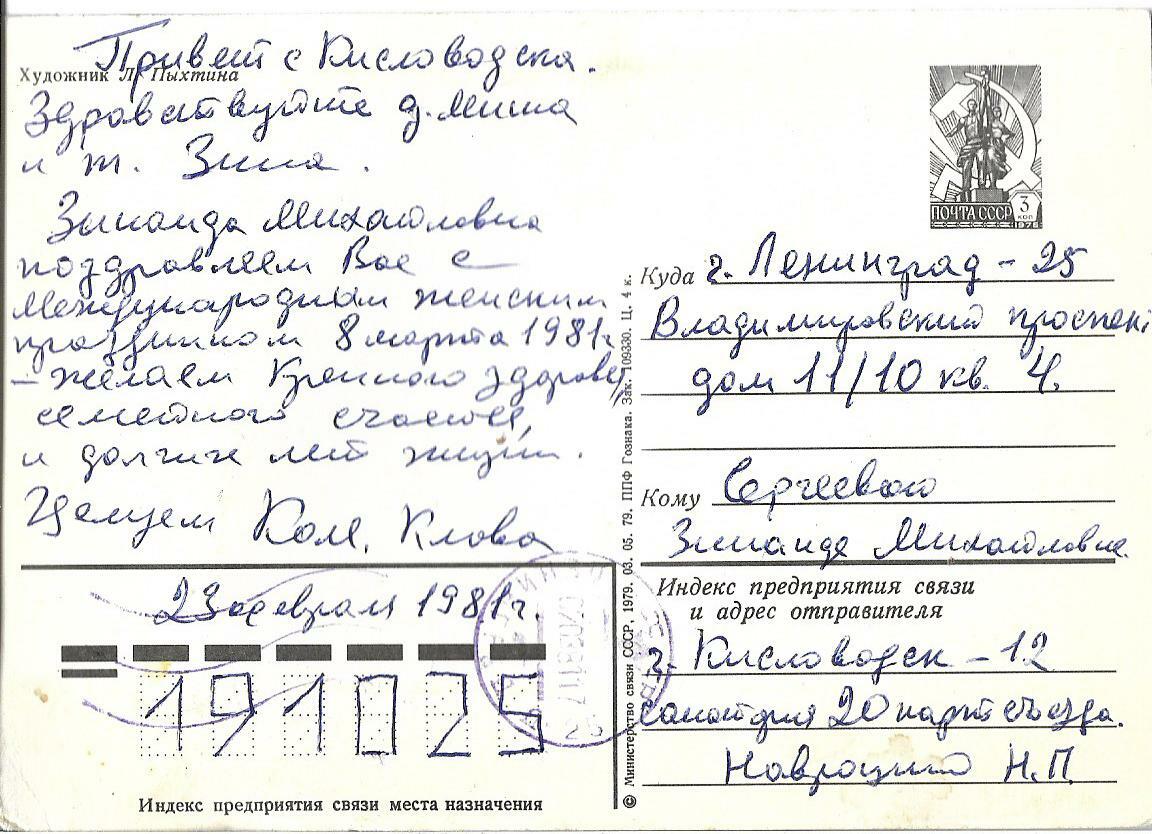 Привет с Кисловодска.
Художник Л. Пыхтина
Здравствуйте д. Миша
и т. Зина.
Зинаида Михайловна
поздравляем Вас с
Международным женским
праздником 8 марта 1981г
– желаем Крепкого здоровья
семейного счастья,
и долгих лет жизни.
Целуем Коля, Клава
23 февраля 1981г.
191025
Индекс предприятия связи места назначения
© Министерство связи СССР, 1979. 03. 05. 79. ППФ Гознака. Зак. 109330. Ц. 4 к.
ПОЧТА СССР 3 коп
Куда г. Ленинград – 25
Владимировский проспект
дом 11/10 кв. 4.
Кому Сергеевой
Зинаиде Михайловне.
Индекс предприятия связи
и адрес отправителя
г. Кисловодск – 12
санатория 20 партсъезда.
Н.П.